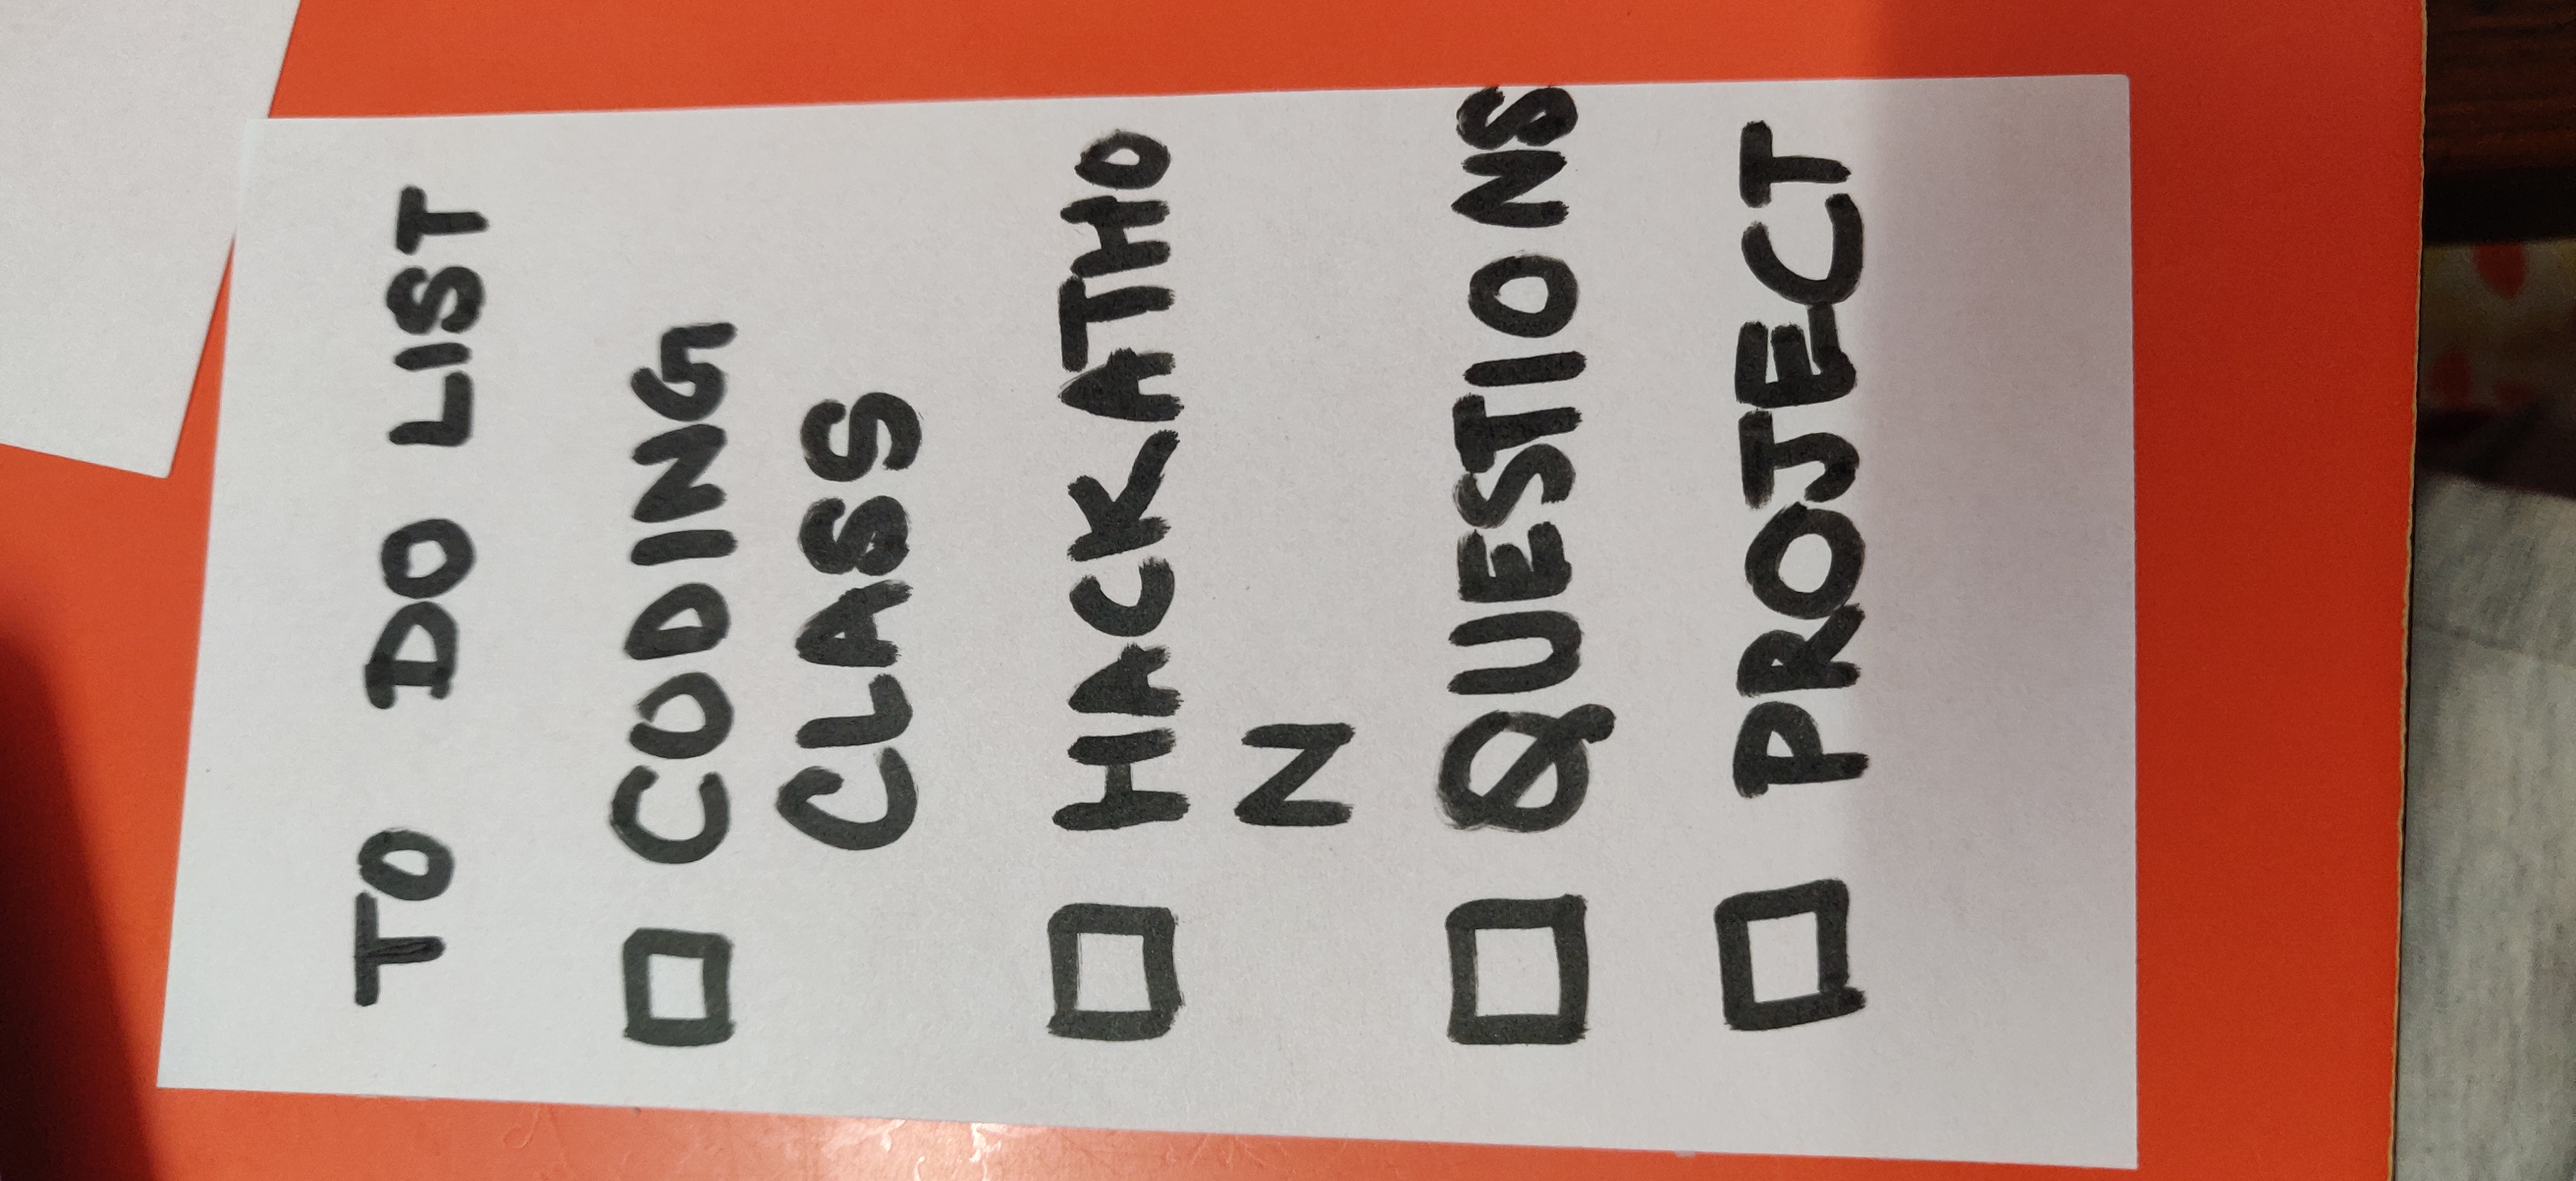 TO DO LIST
☐ CODING
CLASS
☐ HACKATHO
N
☐ QUESTIONS
☐ PROJECT